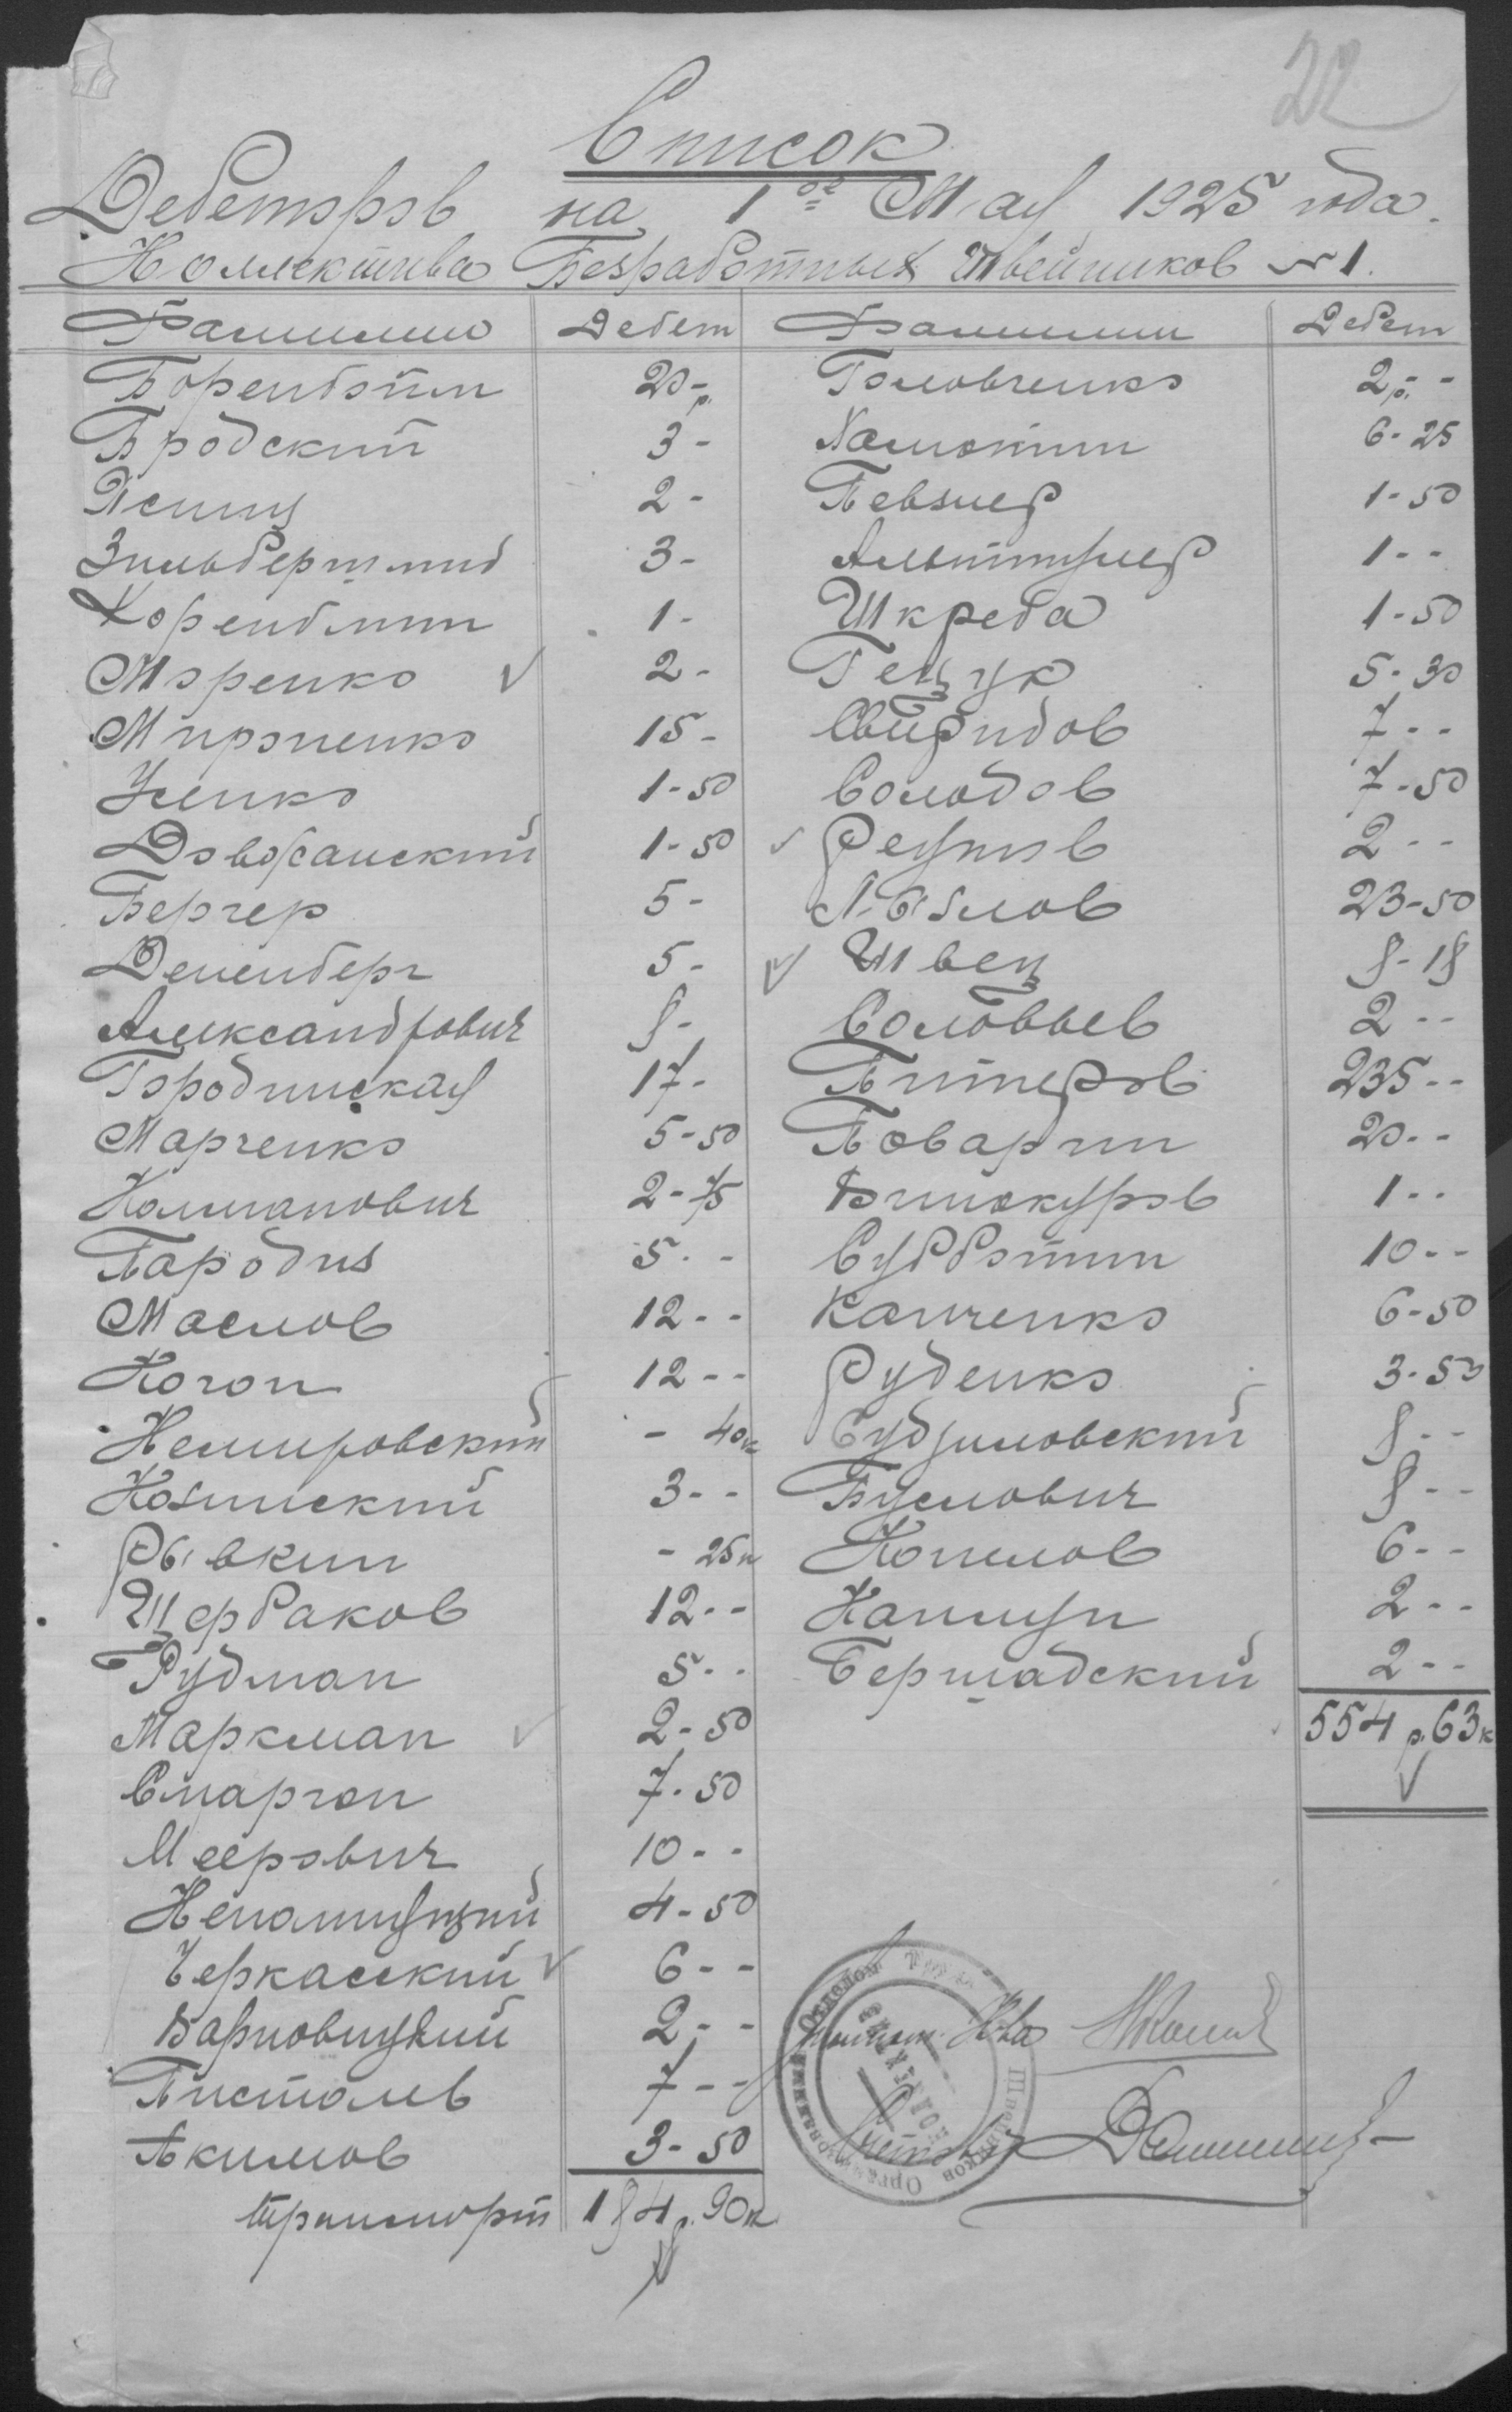 22
Список
Дебеторов на 1ое Мая 1925 года.
Коллектива Безработных Швейников № 1.
Фамилию Дебет Фамилии Дебет
Боренбойм 20-р. Головченко 2р.--
Бродский 3- Халютин 6-25
Ясинц 2- Певзнер 1-50
Зильбершмид 3- Альтшулер 1--
Хорендлин 1- Шкреба 1-50
Моренко 2- Гецук 5-30
Мироненко 15- Свиридов 7--
Уленко 1-50 Солодов 7-50
Довбранский 1-50 Реутов 2--
Бергер 5- Л. Белов 23-50
Дененберг 5- Швец 8-18
Александрович 8- Соловьев 2--
Городинская 17- Питперов 235--
Марченко 5-50 Поварин 20--
Калманович 2-75 Винокуров 1--
Пародиз 5-- Субботин 10--
Маслов 12-- Канченко 6-50
Коган 12-- Руденко 3-50
Немировский - 40к Судзиловский 8--
Козинский 3-- Буслович 8--
Рывкин - 25к Копилов 6--
Щербаков 12-- Капшун 2--
Рудман 5-- Бершадский 2--
Маркман 2-50 554 р. 63к
Смаргон 7-50
Меерович 10--
Непомнящий 4-50
Черкасский 6--
Варновицкий 2--
Пистолев 7--
Акимов 3-50
Транспорт 184р. 90к
Швейников